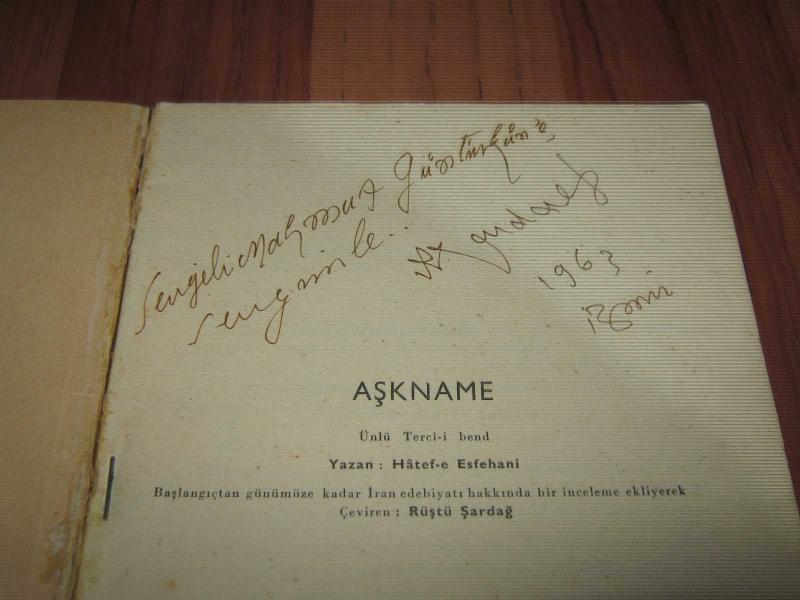 Sevgili Mahmut Güntürkün'e,
Sevgimle..
R. Şardağ
1963
İzmir
AŞKNAME
Ünlü Terci-i bend
Yazan : Hâtef-e Esfehani
Başlangıçtan günümüze kadar İran edebiyatı hakkında bir inceleme ekliyerek
Çeviren : Rüştü Şardağ